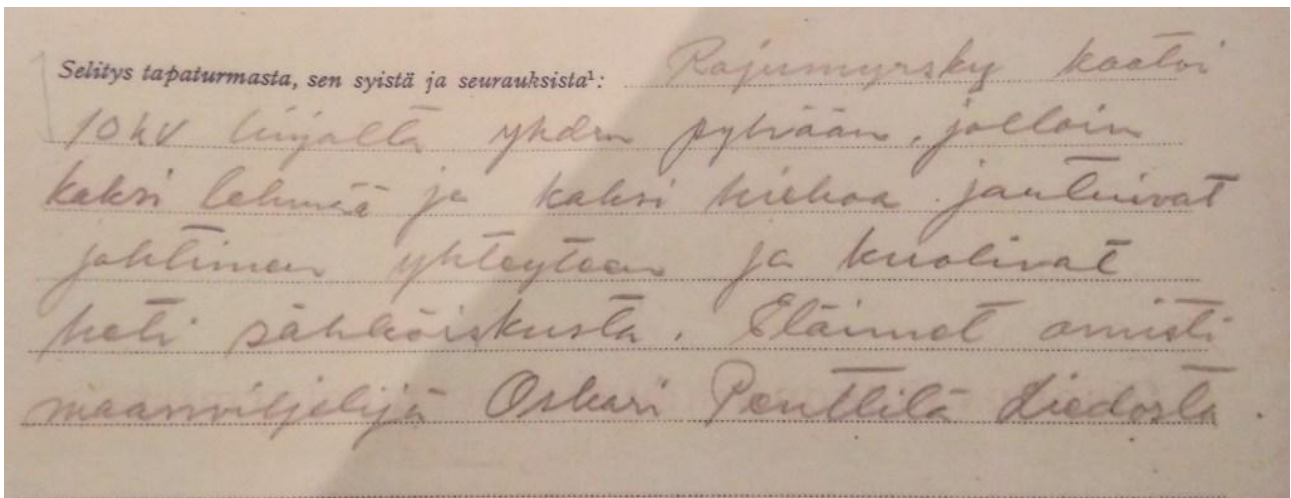 Selitys tapaturmasta, sen syistä ja seurauksista¹: Rajumyrsky kaatoi
10 kV linjalta yhden pylvään, jolloin
kaksi lehmää ja kaksi hiehoa joutuivat
johtimen yhteyteen ja kuolivat
heti sähköiskusta. Eläimet omisti
maanviljelijä Oskari Penttilä Liedosta.